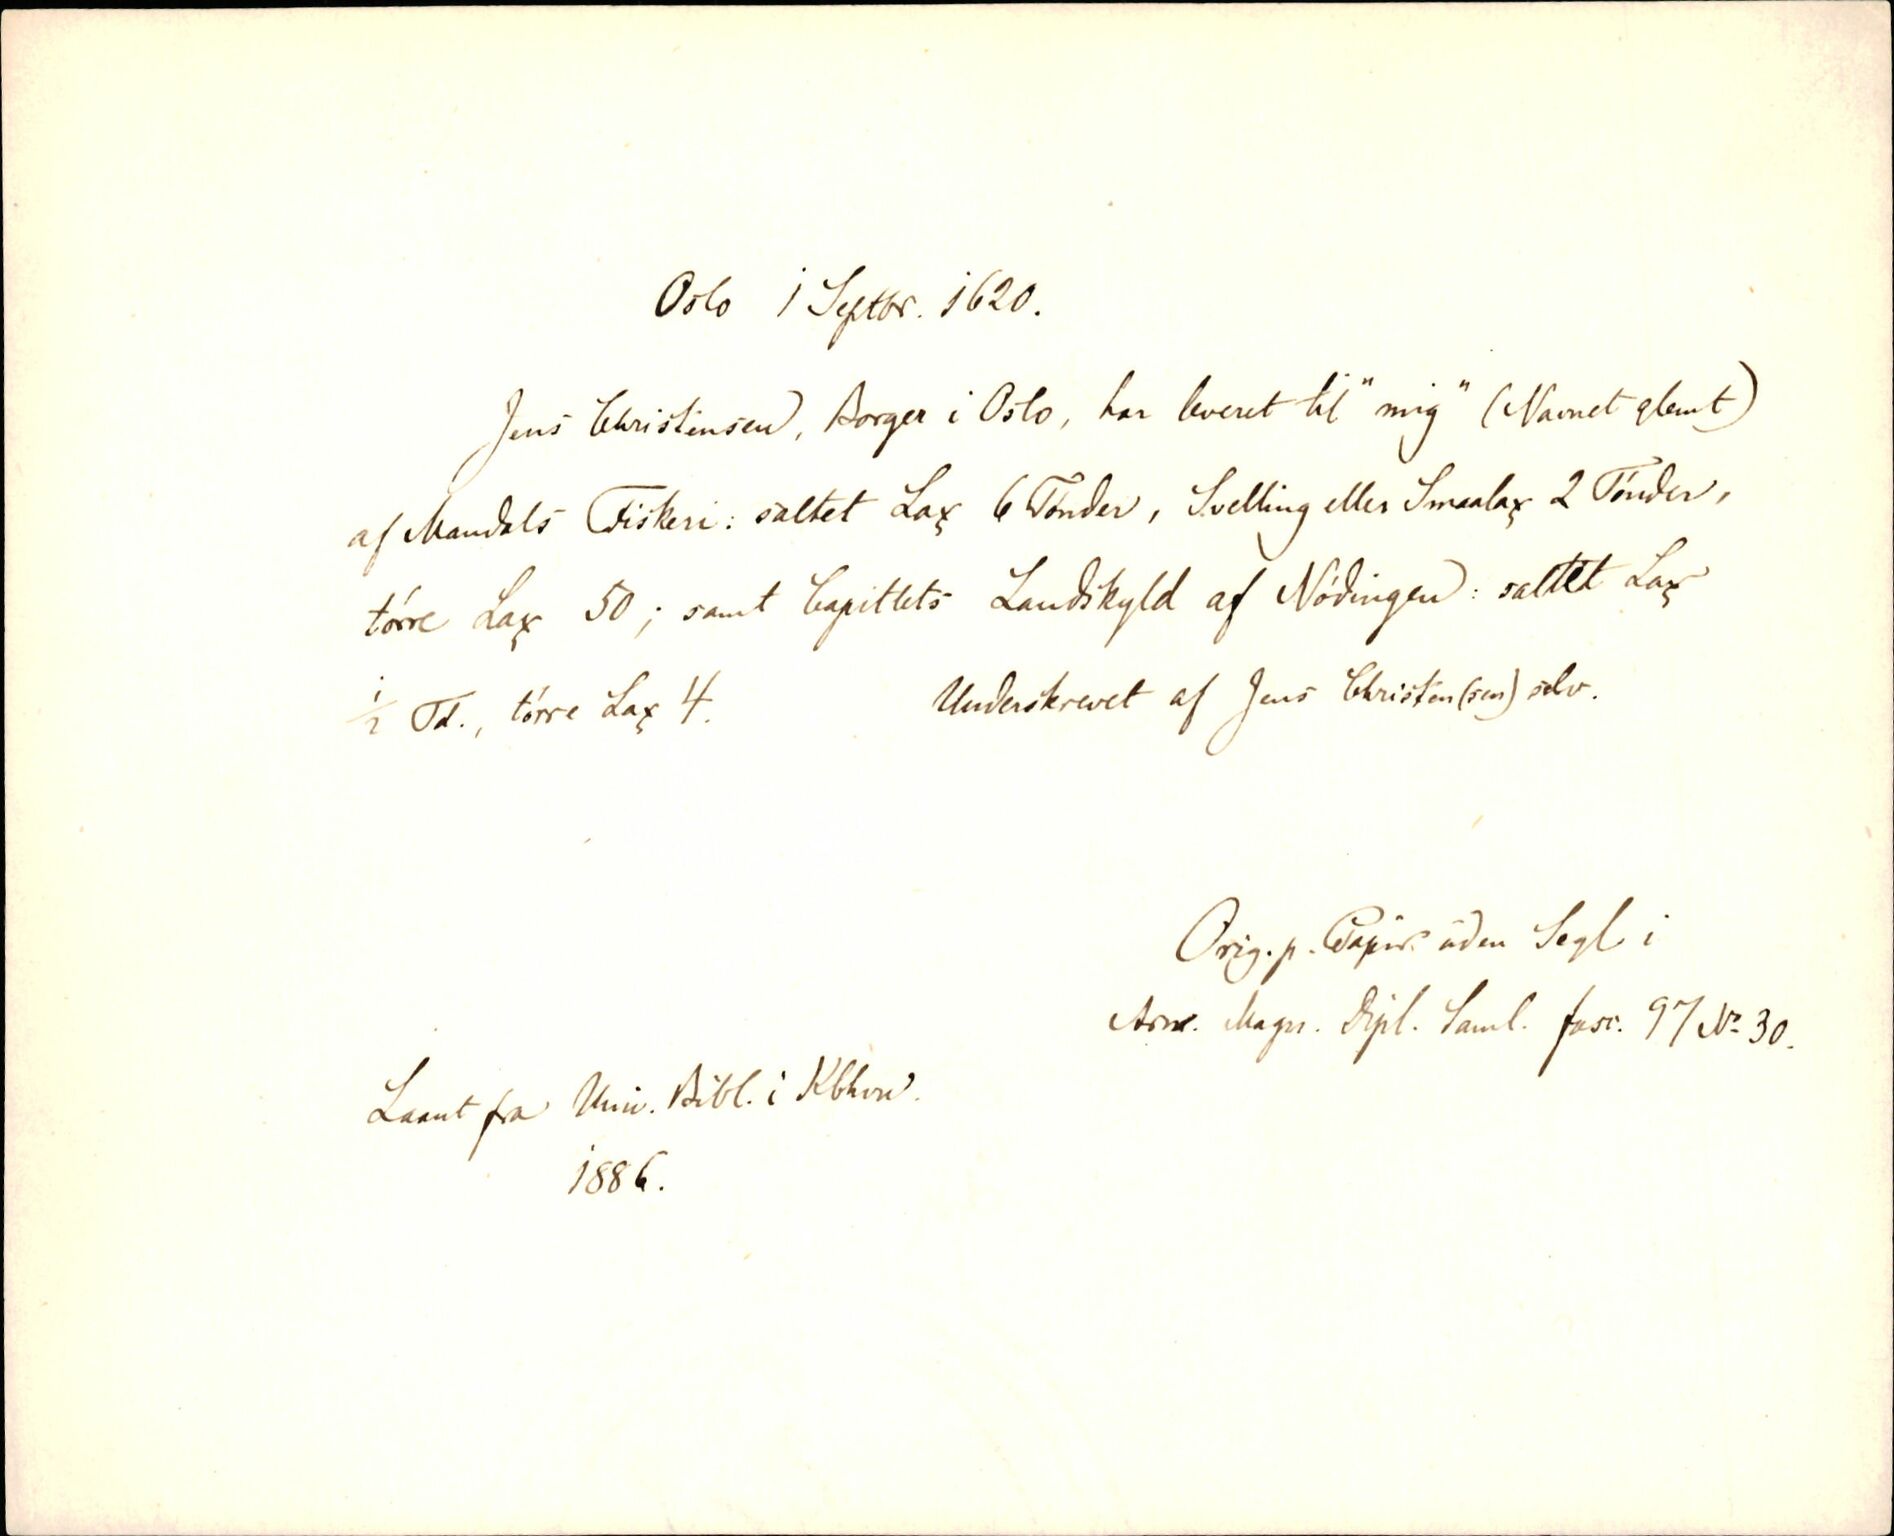 Oslo 1 Septbr. 1620.
Jens Christensen, Borger i Oslo, har leveret til "mig" (Navnet glemt)
af Mandals Fiskeri: saltet Lax 6 Tónder, Svelling eller Smaalax 2 Tónder,
tórre Lax 50; samt Capitlets Landskyld af Nódingen: saltet Lax
½ Td., tórre Lax 4. Underskrevet af Jens Christen(sen) selv.
Orig. p. Papir uden Segl i
Arn. Magn. Dipl. Saml. fasc. 97 No 30.
Laant fra Univ. Bibl. i Kbhvn.
1886.